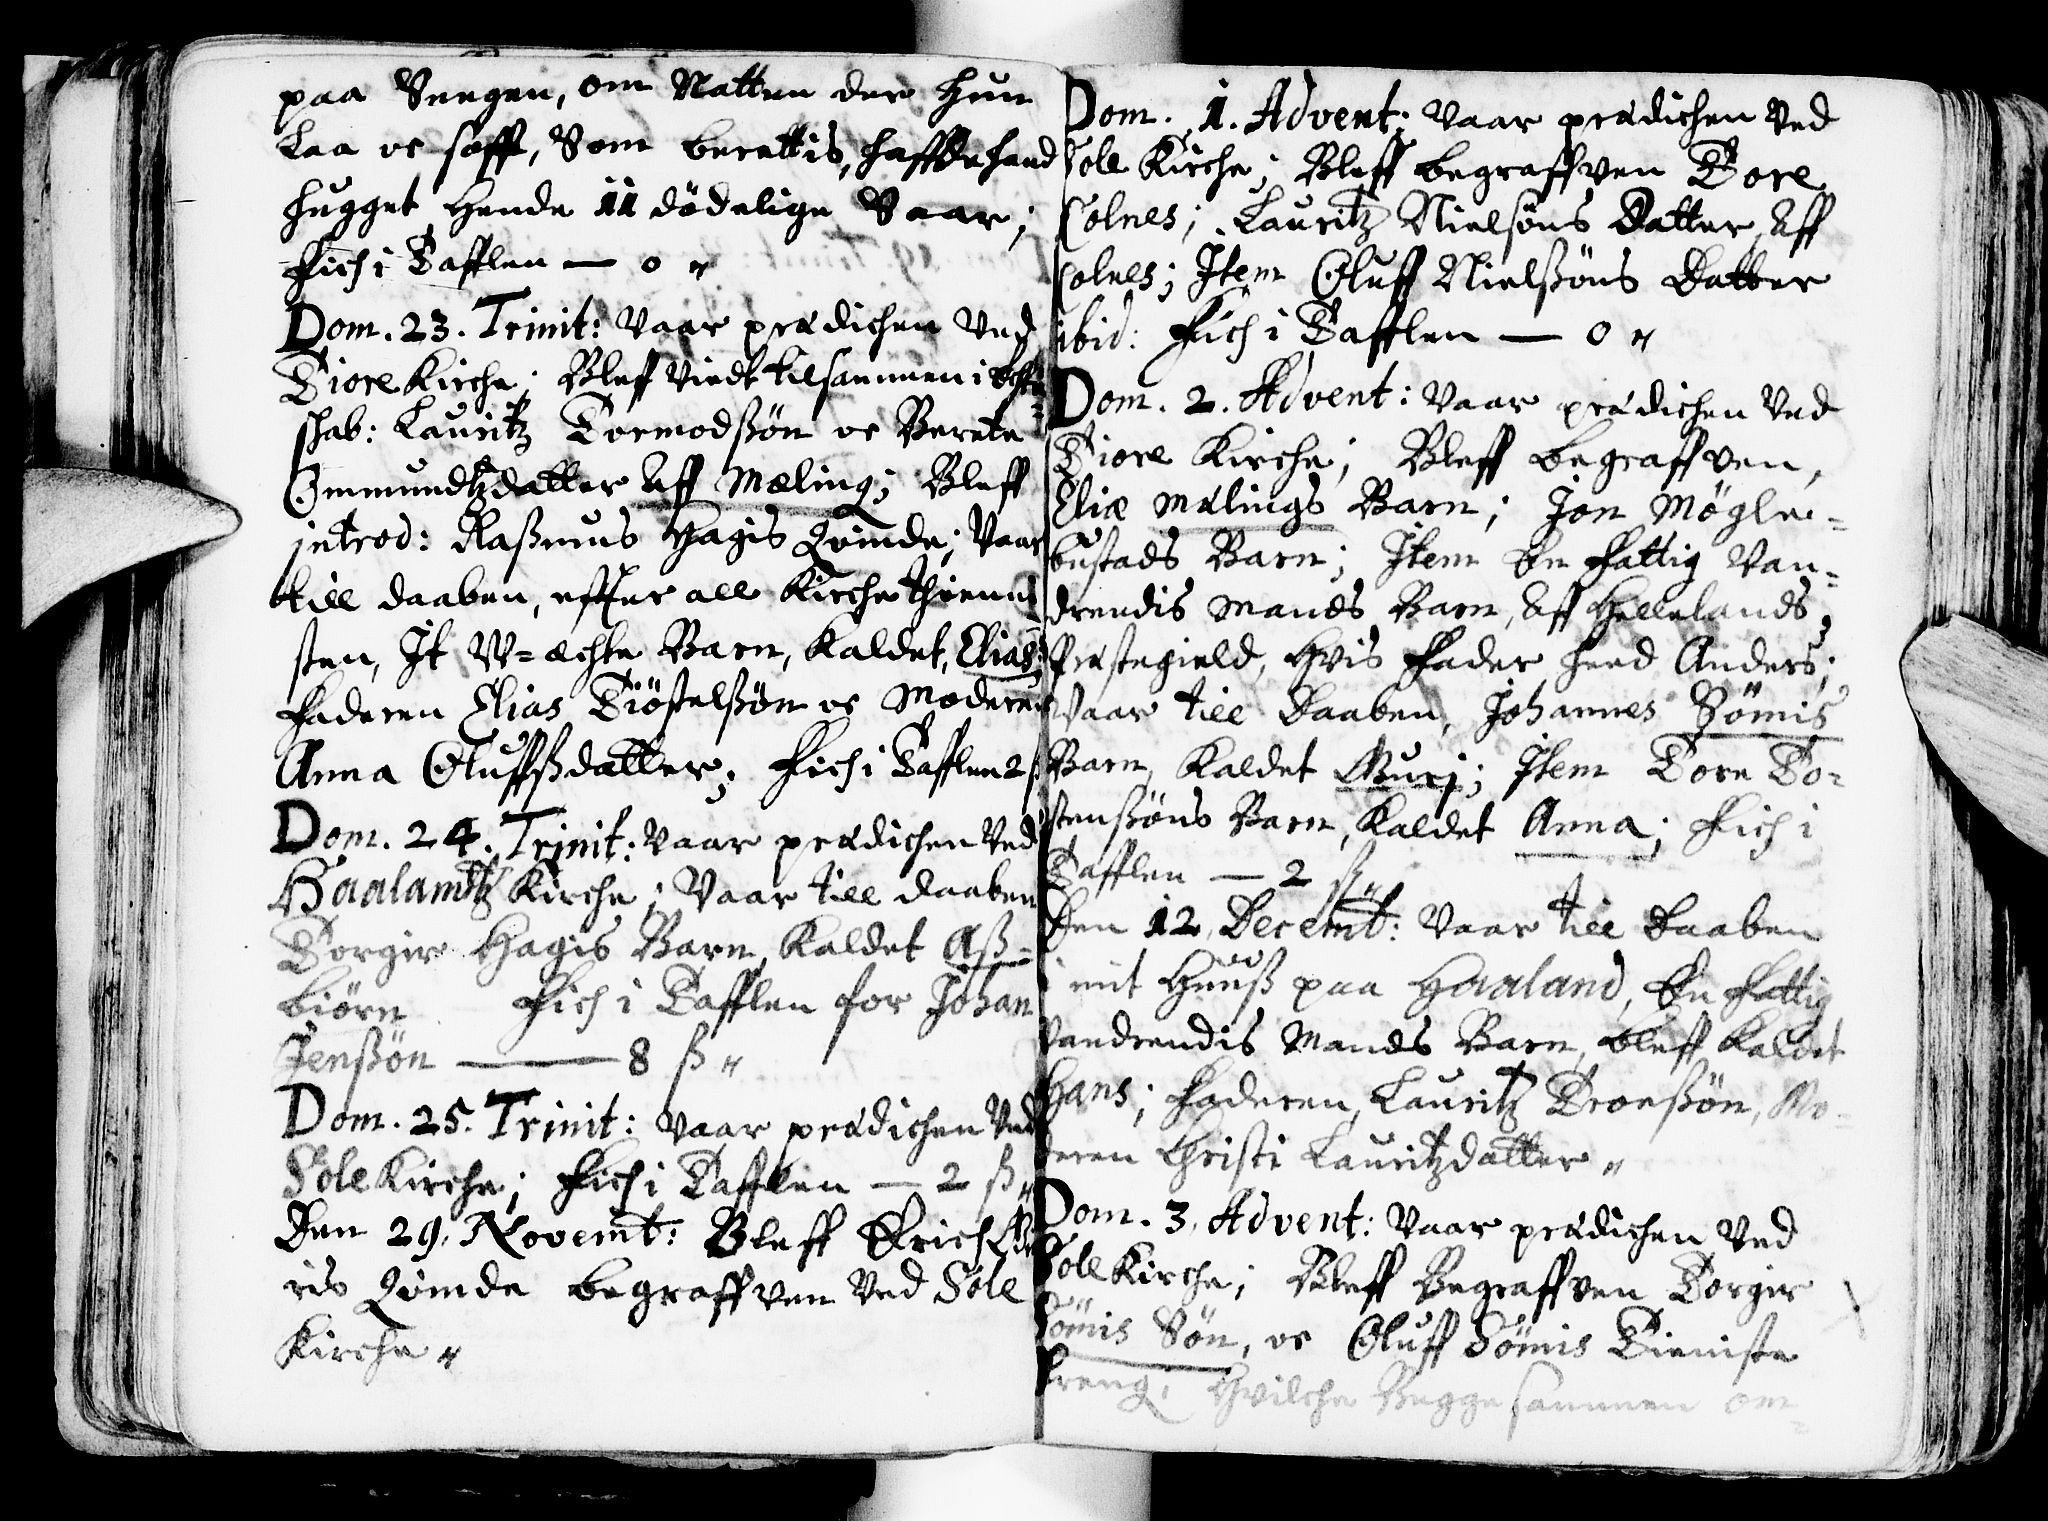 paa Sengen, om Natten der hun
Laa oc soff, Som berettis, haffde hand
hugget Hende 11 dödelige Saar;
Fich i Tafflen — 0 "
Dom. 23. Trinit: Vaar prædichen Ved
Tiore Kirche; Bleff Viedt tilsammen i
schab: Lauritz Tormodßön oc Berete
Ommundtzdatter Aff Mæling; Bleff
introd: Raßmus Hagis Qvinde; Vaar
till daaben, effter all Kirche thienni
sten, It W=æchte Barn, Kaldet, Elias;
Faderen Elias Tiöstelßön oc Moderen
Anna Oluffßdatter; Fich i Tafflen 2 ß
Dom. 24. Trinit: Vaar prædichen Ved
Haalandtz Kirche; Vaar till daaben
Torgier Hagis Barn, Kaldet Aß=
biörn Fich i Tafflen for Johan
Jenßön — 8 ß "
Dom. 25. Trinit: Vaar prædichen Ved
Sole Kirche; Fich i Tafflen — 2 ß "
Den 29. Novemt: Bleff Erich
ris Qvinde begraffven Ved Sole
Kirche "
Dom. 1. Advent: Vaar prædichen Ved
Sole Kirche; Bleff begraffven Tore
Solnes; Lauritz Nielsöns Datter, Aff
Solnes; Item Oluff Nielßöns Datter
ibid: Fich i Tafflen — 0 "
Dom. 2. Advent: Vaar prædichen Ved
Tiore Kirche; Bleff begraffven,
Eliæ Mælings Barn; Jon Mögle=
bustads Barn; Item En Fattig Van=
drendis Mands Barn, Aff Hellelands
Præstegield, Hvis Fader heed Anders;
Vaar till Daaben, Johannes Sömis
Barn, Kaldet Gurj; Item Tore To=
stenßöns Barn, Kaldet Anna; Fich i
Tafflen — 2 ß "
Den 12. Decemt: Vaar till Daaben
i mit Huuß paa Haaland, En Fattig
Vandrendis Mands Barn, bleff Kaldet
Hans; Faderen, Lauritz Tronßön, Mo=
deren Christi Lauritzdatter "
Dom. 3. Advent: Vaar prædichen Ved
Sole Kirche; Bleff Begraffven Torgier
Sömis Sön, oc Oluff Sömis Tieniste
Dreng, Hvilche Begge sammen om=